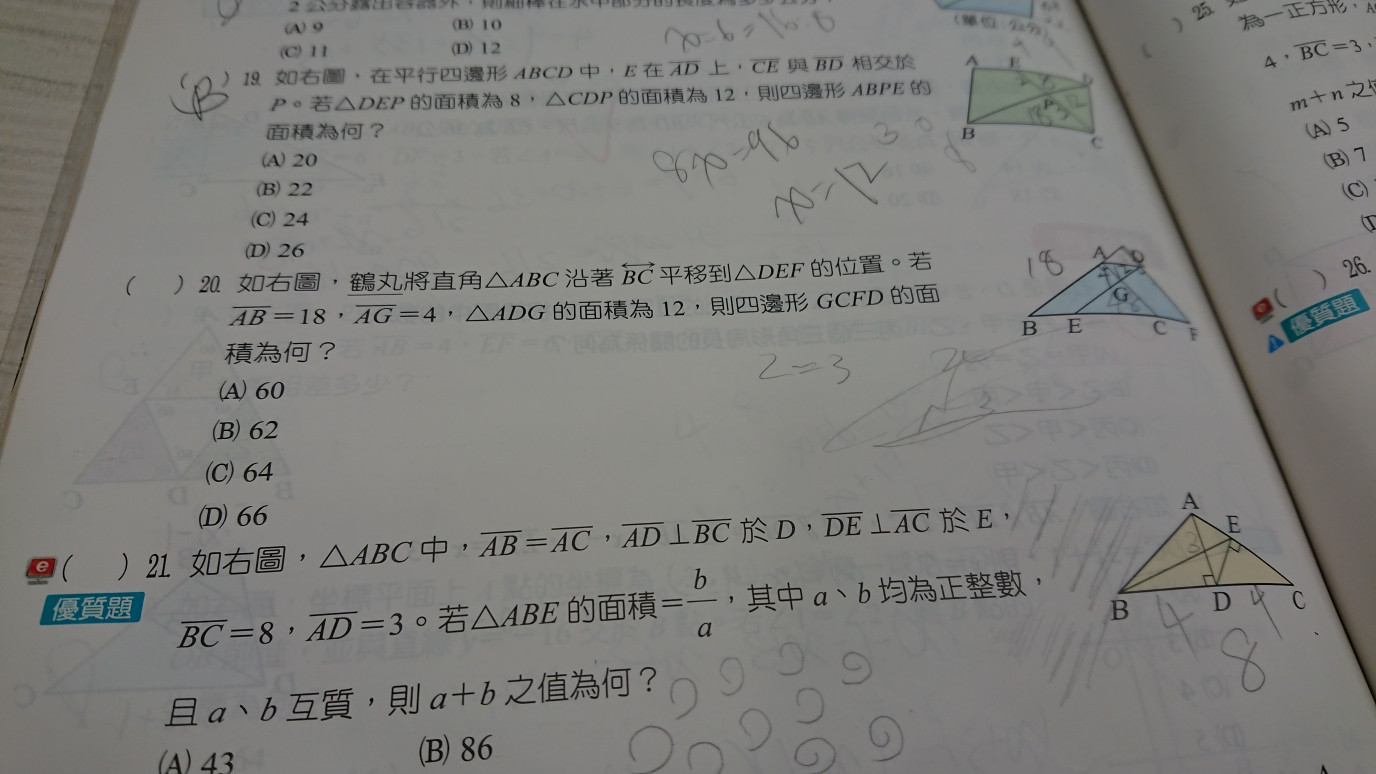 2公分露出容器外,則細棒在水中部分的長度為多少公分?
(A) 9 (B) 10
(C) 11 (D) 12
(單位:公分)
x-6=16.8
(B) 19. 如右圖,在平行四邊形 ABCD 中,E 在 AD 上,CE 與 BD 相交於
P。若△DEP 的面積為 8,△CDP 的面積為 12,則四邊形 ABPE 的
面積為何?
(A) 20
(B) 22
(C) 24
(D) 26
A E D
P
B C
8x=96
x=12
30
8
( ) 20. 如右圖,鶴丸將直角△ABC 沿著 BC 平移到△DEF 的位置。若
AB=18,AG=4,△ADG 的面積為 12,則四邊形 GCFD 的面
積為何?
(A) 60
(B) 62
(C) 64
(D) 66
18 A D
G
B E C F
2=3
2
e ( ) 21. 如右圖,△ABC 中,AB=AC,AD⊥BC 於 D,DE⊥AC 於 E,
優質題 BC=8,AD=3。若△ABE 的面積=b/a,其中 a、b 均為正整數,
且 a、b 互質,則 a+b 之值為何?
(A) 43 (B) 86
A
E
3
B D C
4 4
8
) 25.
為一正方形,
4,BC=3,
m+n 之
(A) 5
(B) 7
(C)
e ( ) 26.
優質題